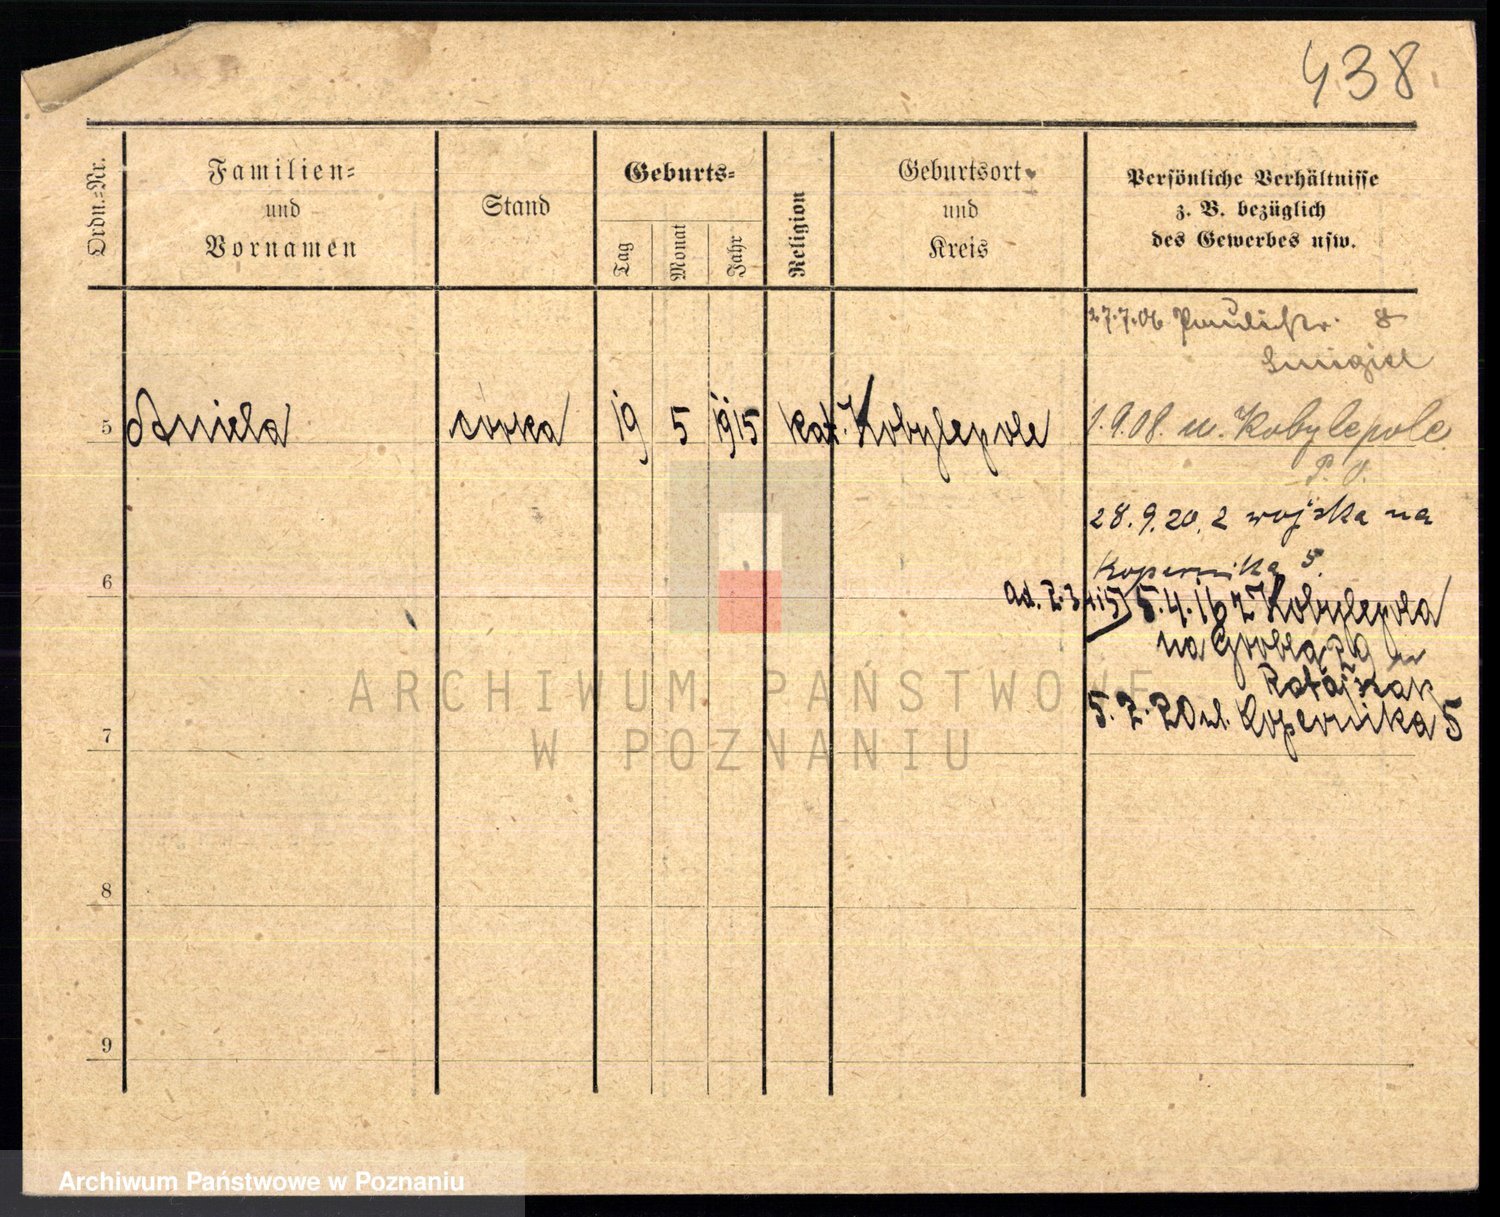 438
Ordn.-Nr.
Familien-
und
Vornamen
Stand
Geburts-
Tag
Monat
Jahr
Religion
Geburtsort
und
Kreis
Persönliche Verhältnisse
z. B. bezüglich
des Gewerbes usw.
27.7.06 Paulistr. 8
Smigiel
5 Aniela córka 19 5 1915 kat. Kobylepole
1.9.08. n. Kobylepole
28.9.20. z wojska na
Kopernika 5.
6
ad. 2.3.415) 5.4.16 z Kobylepola
na Grobla 29
Ratajczak
5.2.20 ul. Kopernika 5
7
8
9
ARCHIWUM PAŃSTWOWE
W POZNANIU
Archiwum Państwowe w Poznaniu